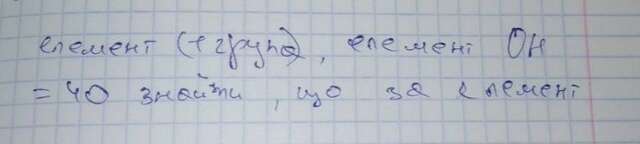 елемент (1 група), елемент OH
= 40 знайти, що за елемент